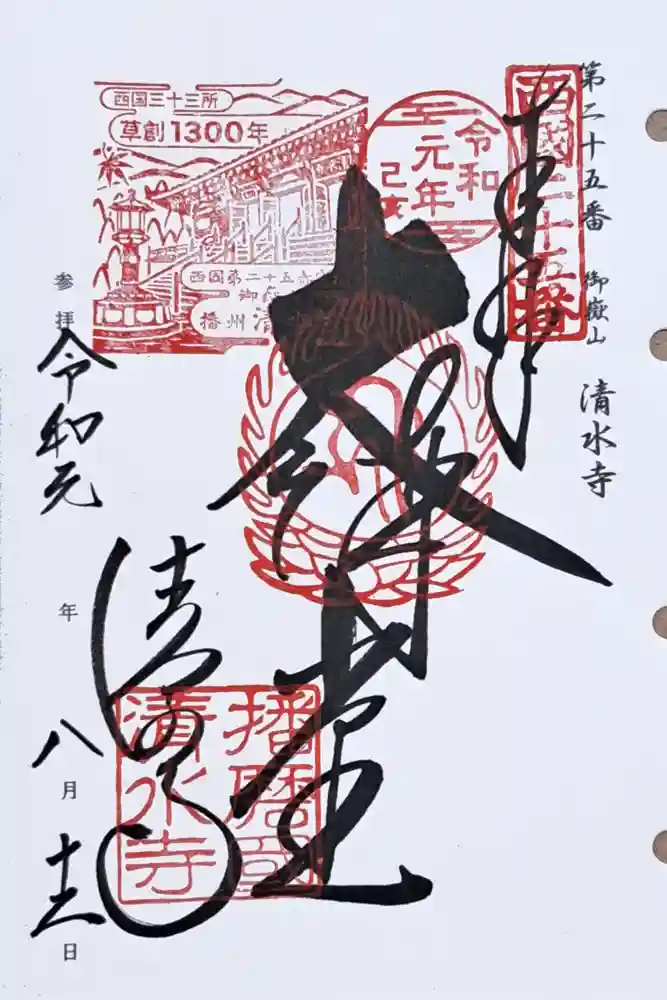 第二十五番 御嶽山 清水寺
西國二十五番
奉拝
令和
元年
己亥
西国三十三所
草創1300年
西国第二十五
御
播州清
大講堂
播磨國
清水寺
清水寺
参拝 令和元年八月十 日